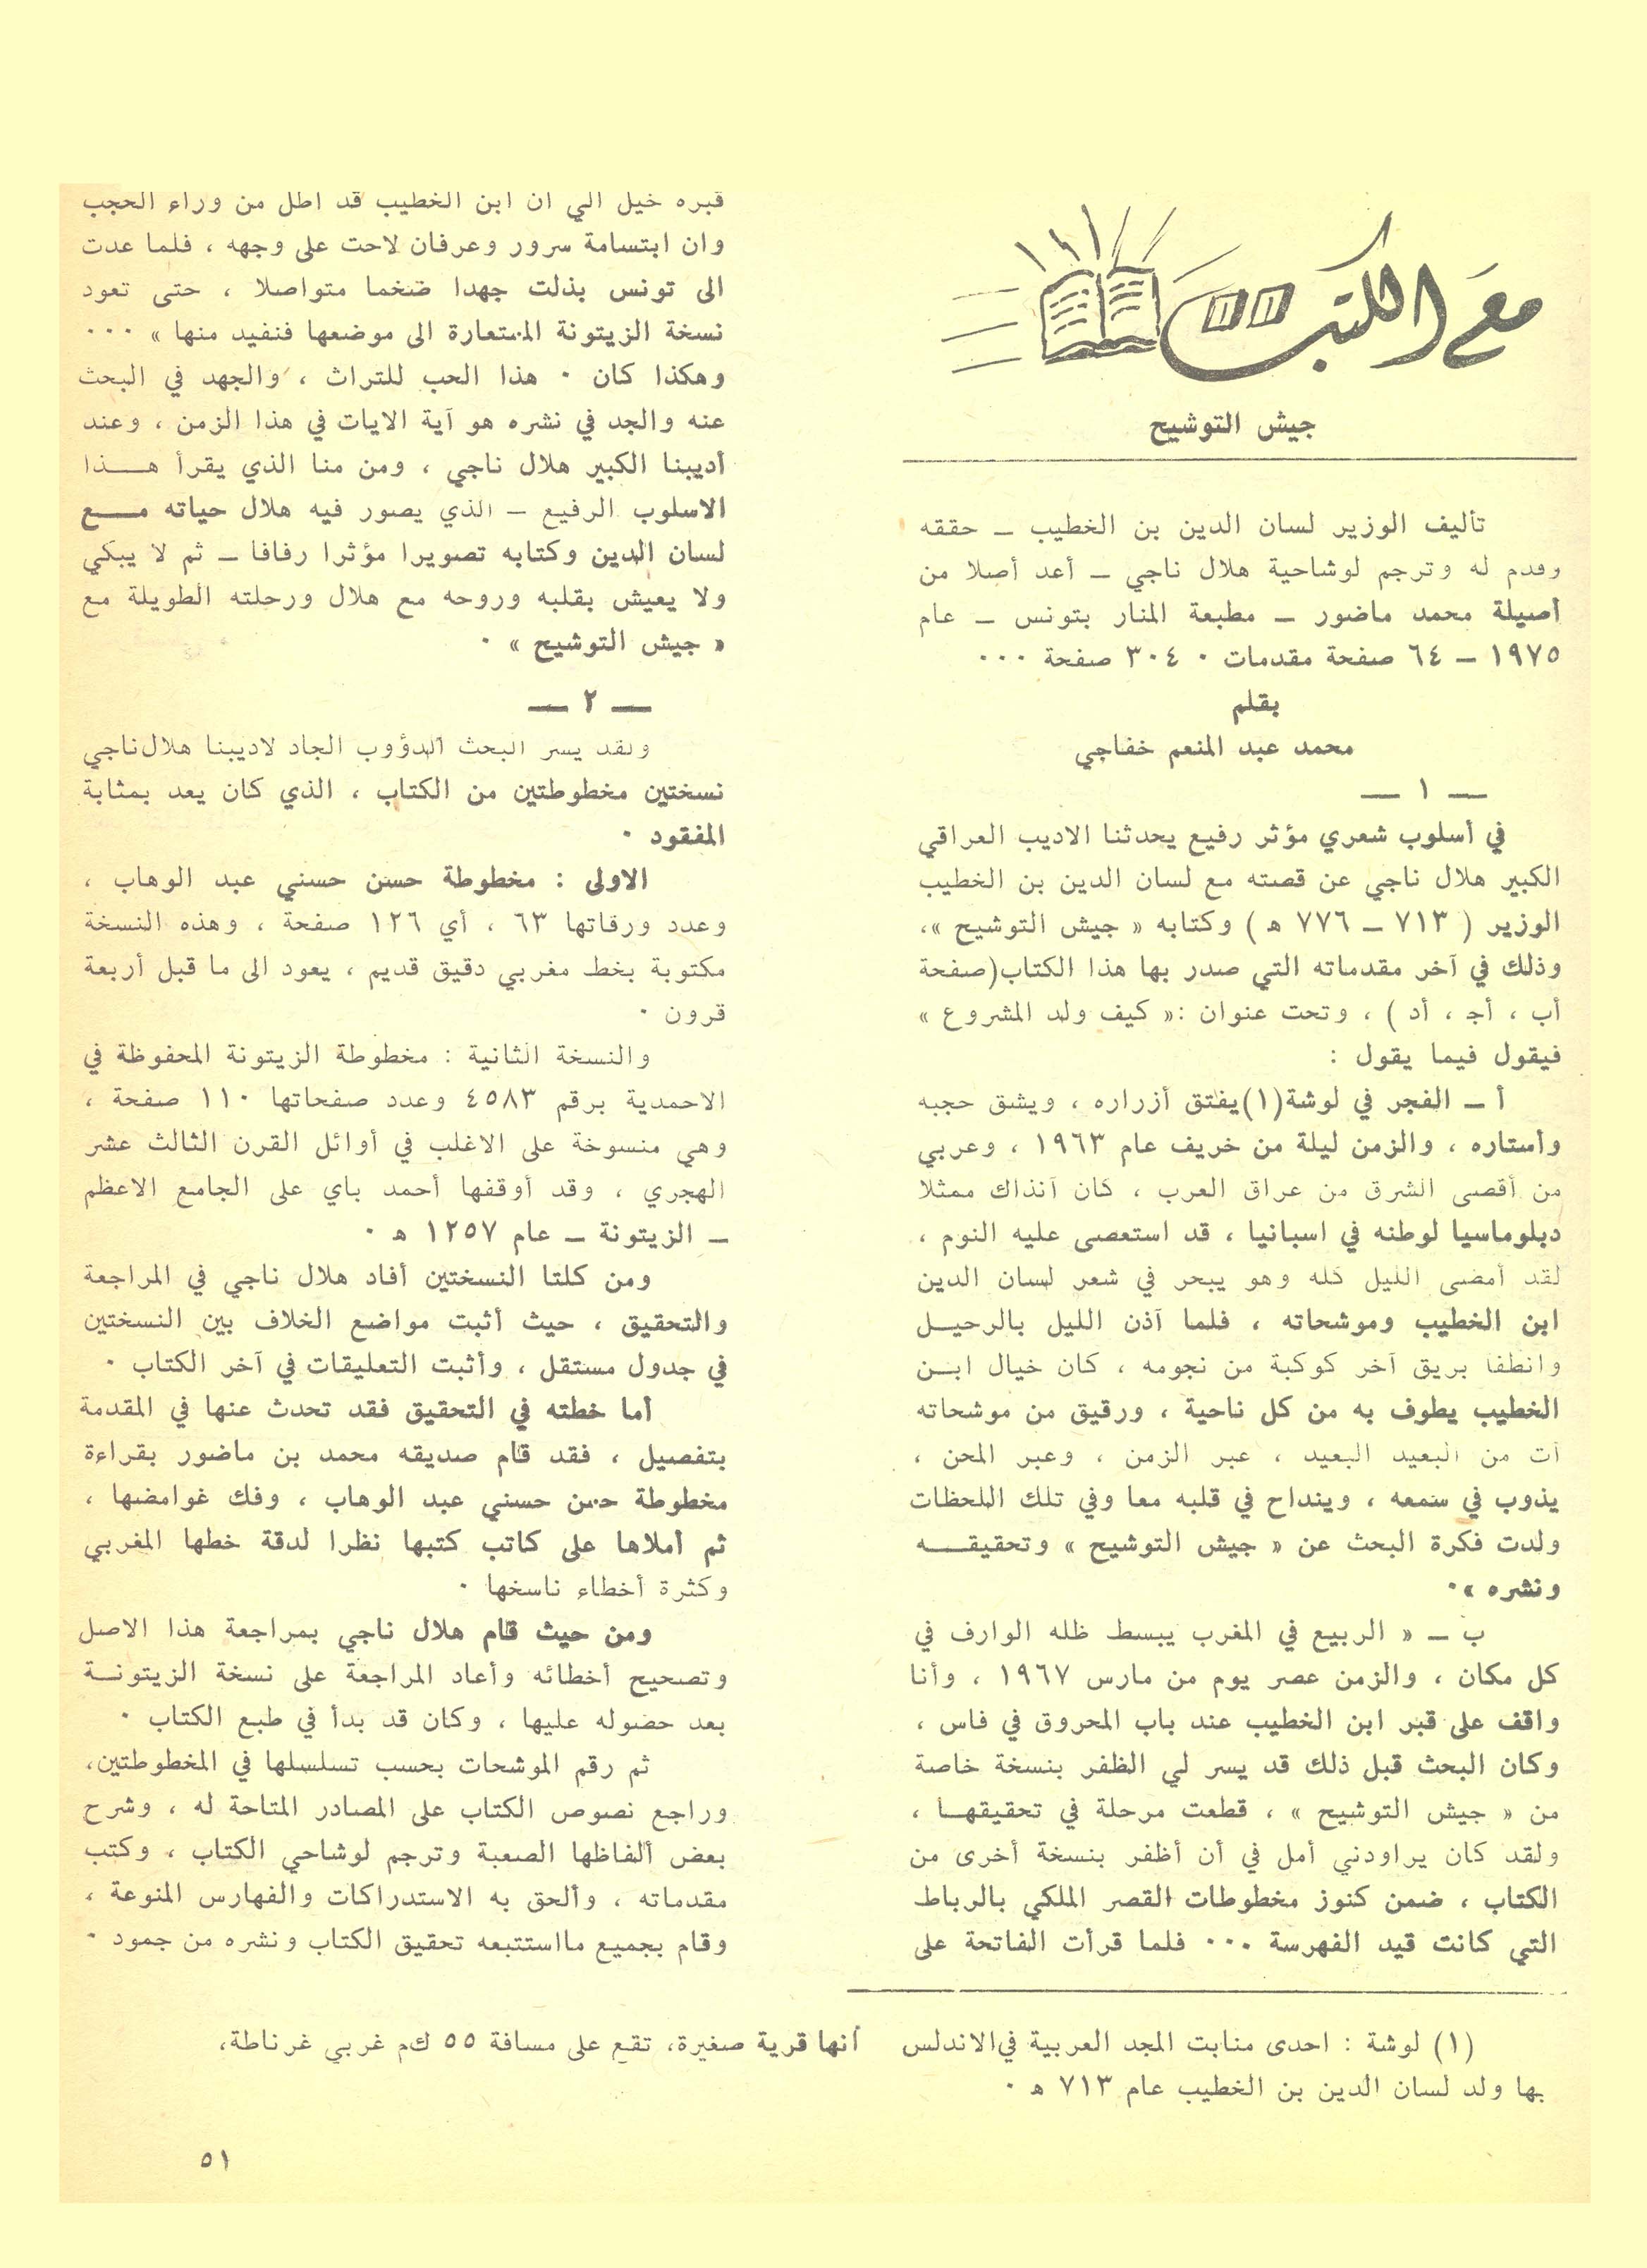 مع الكتب
جيش التوشيح
تأليف الوزير لسان الدين بن الخطيب ــ حققه
وقدم له وترجم لوشاحية هلال ناجي ــ أعد أصلا من
أصيلة محمد ماضور ــ مطبعة المنار بتونس ــ عام
١٩٧٥ ــ ٦٤ صفحة مقدمات ٠ ٣٠٤ صفحة ٠٠٠
بقلم
محمد عبد المنعم خفاجي
ــ ١ ــ
في أسلوب شعري مؤثر رفيع يحدثنا الاديب العراقي
الكبير هلال ناجي عن قصته مع لسان الدين بن الخطيب
الوزير ( ٧١٣ ــ ٧٧٦ هـ ) وكتابه « جيش التوشيح »،
وذلك في آخر مقدماته التي صدر بها هذا الكتاب(صفحة
أب ، أجـ ، أد ) ، وتحت عنوان :« كيف ولد المشروع »
فيقول فيما يقول :
أ ــ الفجر في لوشة(١)يفتق أزراره ، ويشق حجبه
وأستاره ، والزمن ليلة من خريف عام ١٩٦٣ ، وعربي
من أقصى الشرق من عراق العرب ، كان آنذاك ممثلا
دبلوماسيا لوطنه في اسبانيا ، قد استعصى عليه النوم ،
لقد أمضى الليل كله وهو يبحر في شعر لسان الدين
ابن الخطيب وموشحاته ، فلما آذن الليل بالرحيــل
وانطفا بريق آخر كوكبة من نجومه ، كان خيال ابــن
الخطيب يطوف به من كل ناحية ، ورقيق من موشحاته
آت من البعيد البعيد ، عبر الزمن ، وعبر المحن ،
يذوب في سمعه ، وينداح في قلبه معا وفي تلك اللحظات
ولدت فكرة البحث عن « جيش التوشيح » وتحقيقــه
ونشره »٠
ب ــ « الربيع في المغرب يبسط ظله الوارف في
كل مكان ، والزمن عصر يوم من مارس ١٩٦٧ ، وأنا
واقف على قبر ابن الخطيب عند باب المحروق في فاس ،
وكان البحث قبل ذلك قد يسر لي الظفر بنسخة خاصة
من « جيش التوشيح » ، قطعت مرحلة في تحقيقهــا ،
ولقد كان يراودني أمل في أن أظفر بنسخة أخرى من
الكتاب ، ضمن كنوز مخطوطات القصر الملكي بالرباط
التي كانت قيد الفهرسة ٠٠٠ فلما قرأت الفاتحة على
قبره خيل الي ان ابن الخطيب قد اطل من وراء الحجب
وان ابتسامة سرور وعرفان لاحت على وجهه ، فلما عدت
الى تونس بذلت جهدا ضخما متواصلا ، حتى تعود
نسخة الزيتونة المستعارة الى موضعها فنفيد منها » ٠٠٠
وهكذا كان ٠ هذا الحب للتراث ، والجهد في البحث
عنه والجد في نشره هو آية الايات في هذا الزمن ، وعند
أديبنا الكبير هلال ناجي ، ومن منا الذي يقرأ هــذا
الاسلوب الرفيع ــ الذي يصور فيه هلال حياته مــع
لسان الدين وكتابه تصويرا مؤثرا رفافا ــ ثم لا يبكي
ولا يعيش بقلبه وروحه مع هلال ورحلته الطويلة مع
« جيش التوشيح » ٠
ــ ٢ ــ
ولقد يسر البحث الدؤوب الجاد لاديبنا هلال ناجي
نسختين مخطوطتين من الكتاب ، الذي كان يعد بمثابة
المفقود ٠
الاولى : مخطوطة حسن حسني عبد الوهاب ،
وعدد ورقاتها ٦٣ ، أي ١٢٦ صفحة ، وهذه النسخة
مكتوبة بخط مغربي دقيق قديم ، يعود الى ما قبل أربعة
قرون ٠
والنسخة الثانية : مخطوطة الزيتونة المحفوظة في
الاحمدية برقم ٤٥٨٣ وعدد صفحاتها ١١٠ صفحة ،
وهي منسوخة على الاغلب في أوائل القرن الثالث عشر
الهجري ، وقد أوقفها أحمد باي على الجامع الاعظم
ــ الزيتونة ــ عام ١٢٥٧ هـ ٠
ومن كلتا النسختين أفاد هلال ناجي في المراجعة
والتحقيق ، حيث أثبت مواضع الخلاف بين النسختين
في جدول مستقل ، وأثبت التعليقات في آخر الكتاب ٠
أما خطته في التحقيق فقد تحدث عنها في المقدمة
بتفصيل ، فقد قام صديقه محمد بن ماضور بقراءة
مخطوطة حسن حسني عبد الوهاب ، وفك غوامضها ،
ثم أملاها على كاتب كتبها نظرا لدقة خطها المغربي
وكثرة أخطاء ناسخها ٠
ومن حيث قام هلال ناجي بمراجعة هذا الاصل
وتصحيح أخطائه وأعاد المراجعة على نسخة الزيتونــة
بعد حصوله عليها ، وكان قد بدأ في طبع الكتاب ٠
ثم رقم الموشحات بحسب تسلسلها في المخطوطتين،
وراجع نصوص الكتاب على المصادر المتاحة له ، وشرح
بعض ألفاظها الصعبة وترجم لوشاحي الكتاب ، وكتب
مقدماته ، وألحق به الاستدراكات والفهارس المنوعة ،
وقام بجميع مااستتبعه تحقيق الكتاب ونشره من جمود ٠
(١) لوشة : احدى منابت المجد العربية في الاندلس أنها قرية صغيرة، تقع على مسافة ٥٥ كم غربي غرناطة،
بها ولد لسان الدين بن الخطيب عام ٧١٣ هـ ٠
٥١